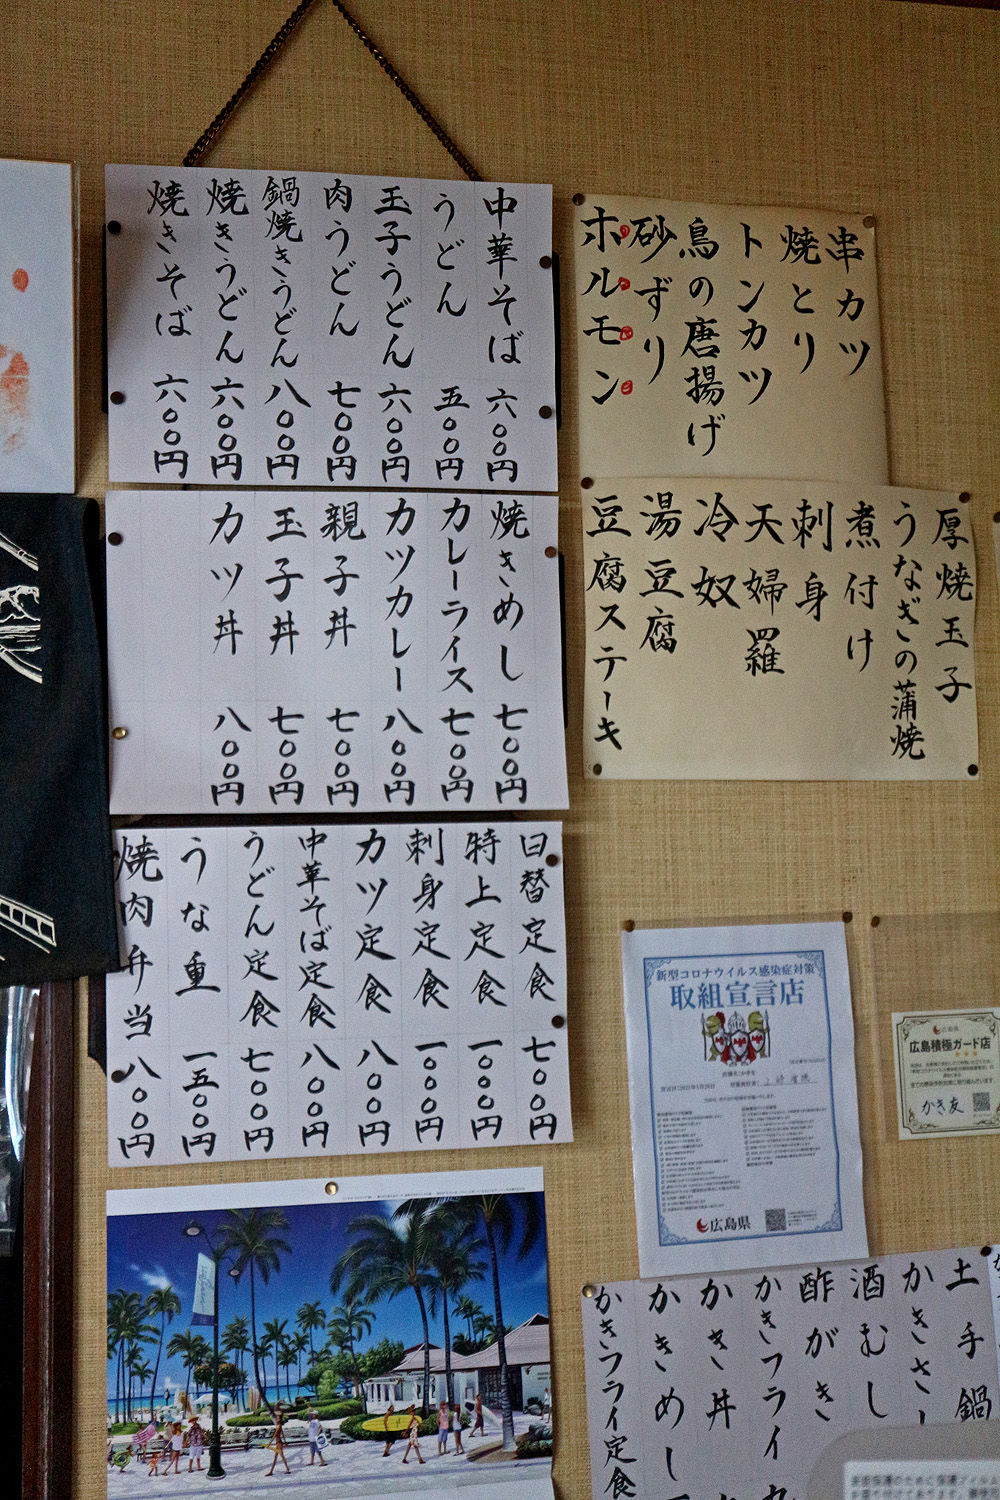 中華そば 六〇〇円
うどん 五〇〇円
玉子うどん 六〇〇円
肉うどん 七〇〇円
鍋焼きうどん 八〇〇円
焼きうどん 六〇〇円
焼きそば 六〇〇円
串カツ
焼とり
トンカツ
鳥の唐揚げ
砂ずり
ホルモン
焼きめし 七〇〇円
カレーライス 七〇〇円
カツカレー 八〇〇円
親子丼 七〇〇円
玉子丼 七〇〇円
カツ丼 八〇〇円
厚焼玉子
うなぎの蒲焼
煮付け
刺身
天婦羅
冷奴
湯豆腐
豆腐ステーキ
日替定食 七〇〇円
特上定食 一〇〇〇円
刺身定食 一〇〇〇円
カツ定食 八〇〇円
中華そば定食 八〇〇円
うどん定食 七〇〇円
うな重 一五〇〇円
焼肉弁当 八〇〇円
新型コロナウイルス感染症対策
取組宣言店
広島県
広島県
広島積極ガード店
かき友
土手鍋
かきさ
酒むし
酢がき
かきフライ
かき丼
かきめし
かきフライ定食